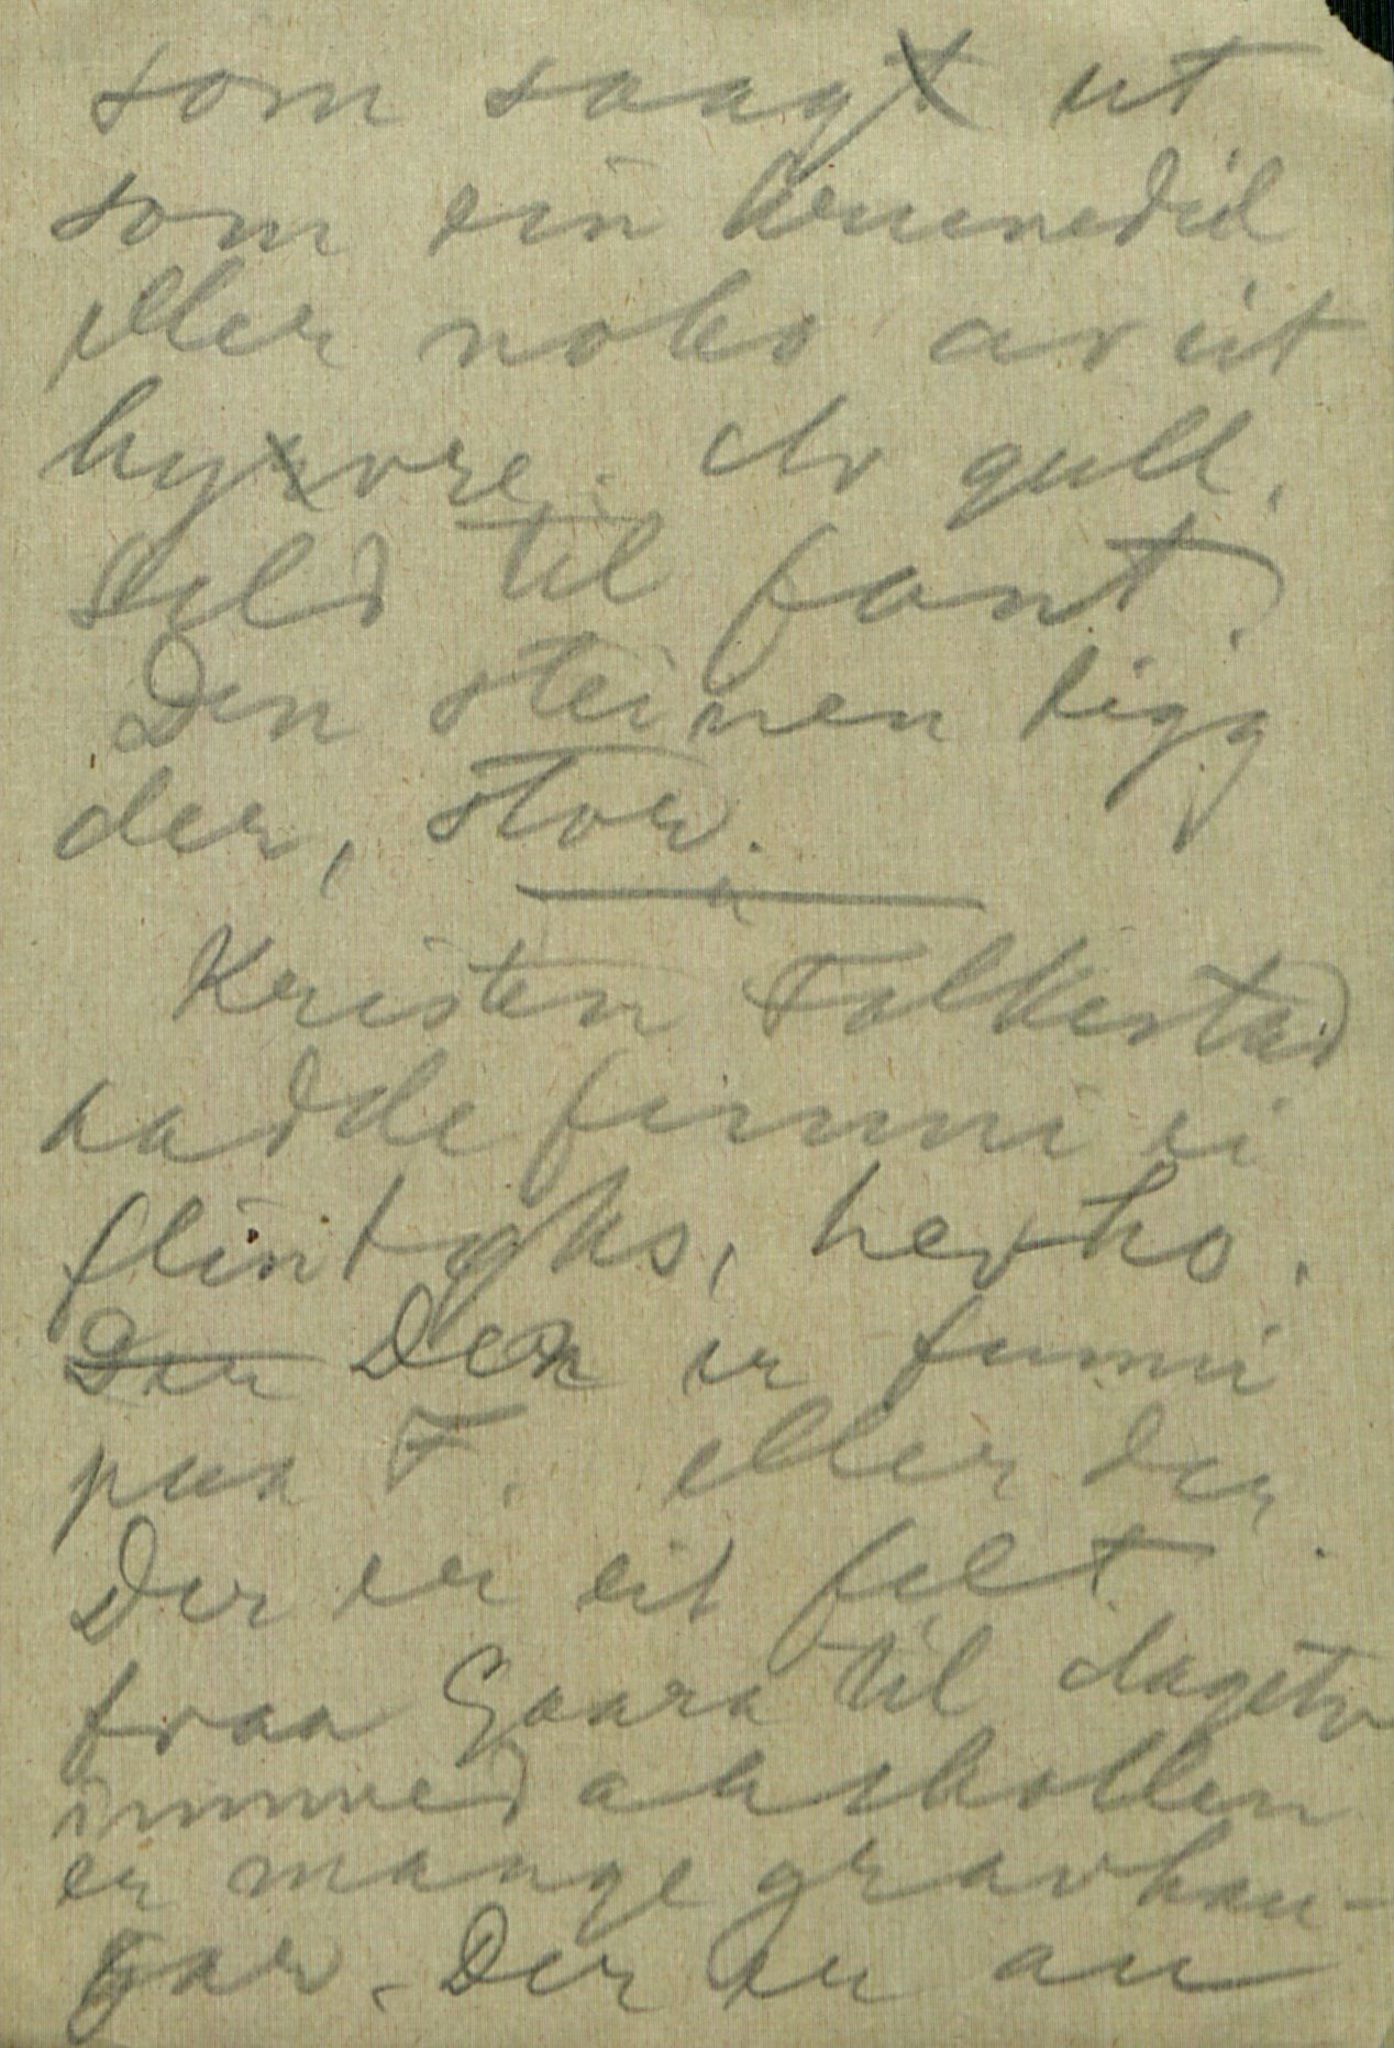 som saag ut
som ein krunedel
eller noko av eit
hyrvore. Av gull.
Seld til fant.
Den steinen ligg
der, stor.
Kristen Folkestad
hadde funni ei
flintyks, herko.
Der Den er funni
paa F. eller der
Der er eit felt
fraa Gaara til
immed akskollen
er mange gravhau-
gar. Der er au